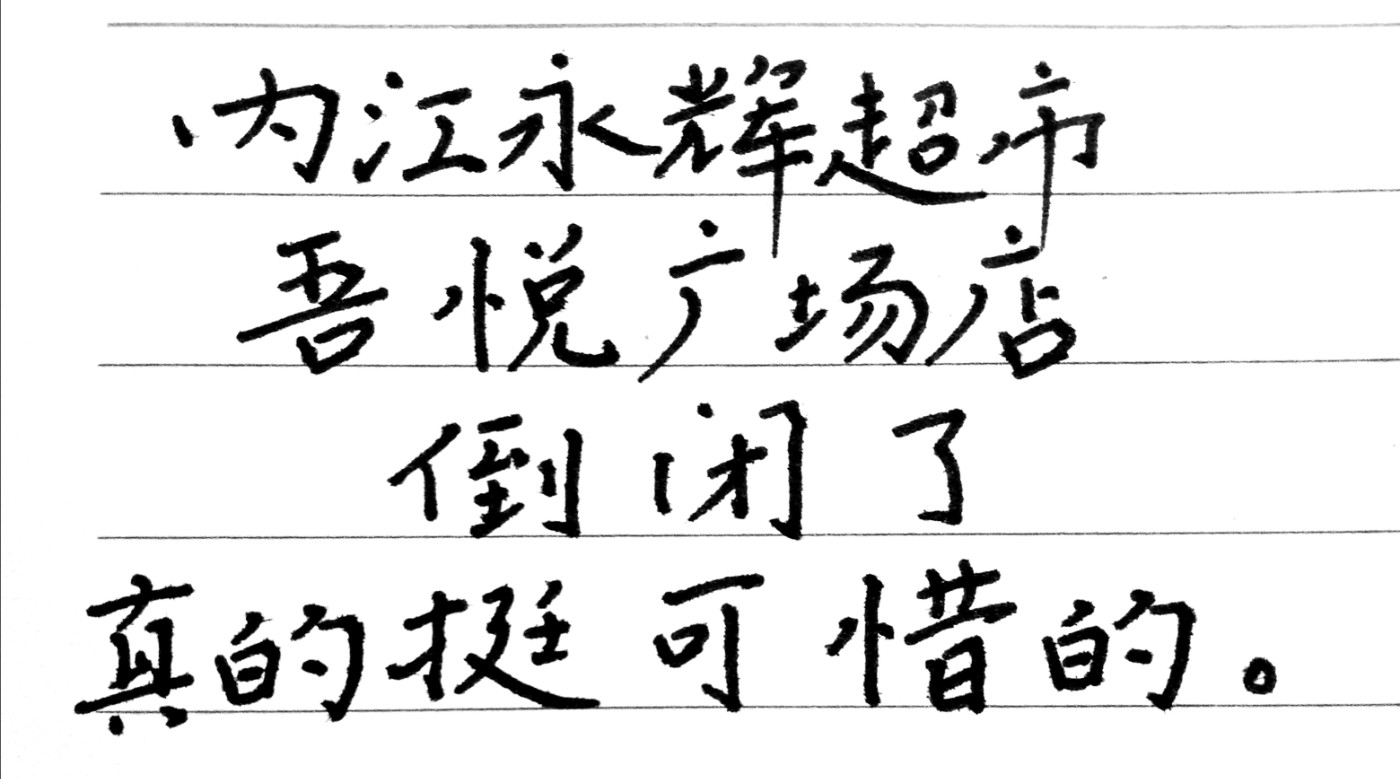 内江永辉超市
吾悦广场店
倒闭了
真的挺可惜的。